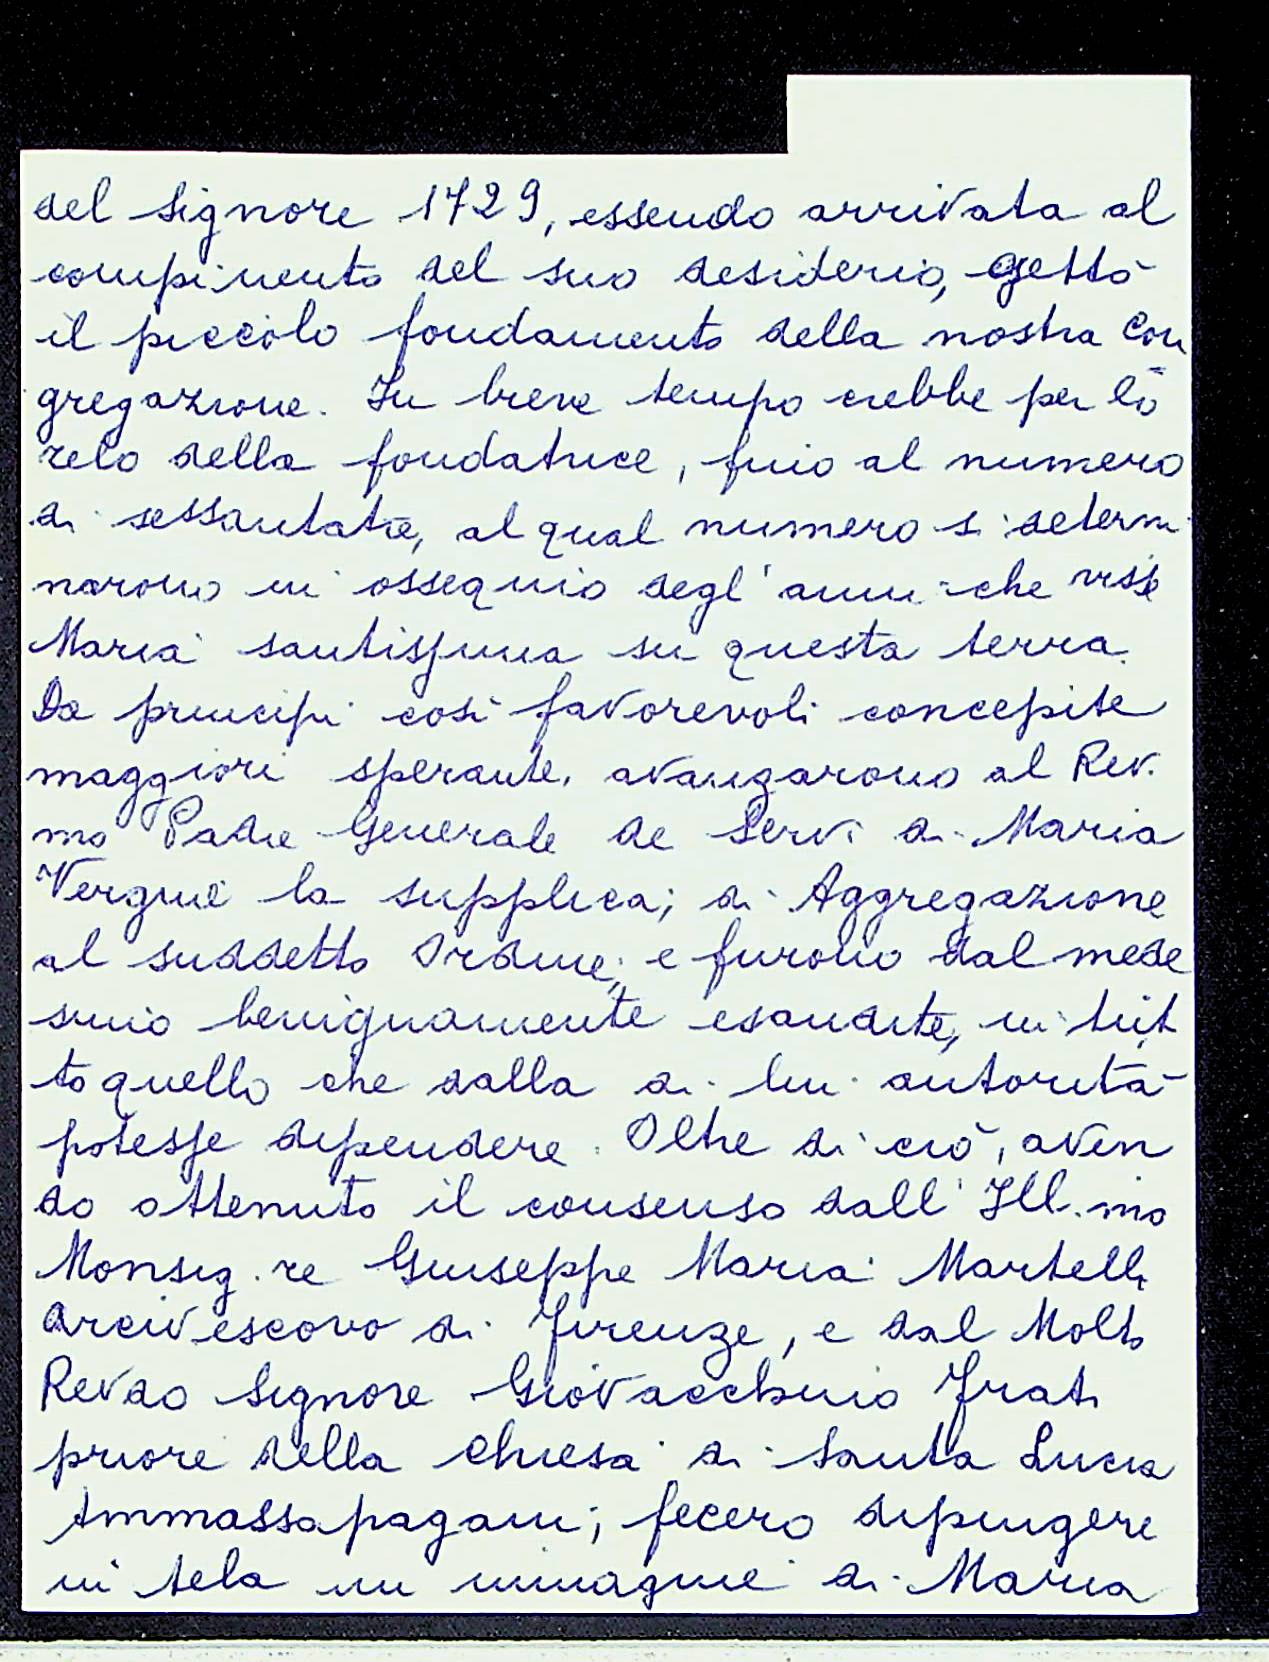 del Signore 1729, essendo arrivata al
compimento del suo desiderio, gettò
il piccolo fondamento della nostra Con
gregazione. In breve tempo crebbe per lo
zelo della fondatrice, fino al numero
di sessantatre, al qual numero si determi
narono in ossequio degl'anni che visse
Maria santissima su questa terra.
Da principi così favorevoli concepite
maggiori speranze, avanzarono al Rev.
mo Padre Generale de Servi di Maria
Vergine la supplica; di Aggregazione
al suddetto Ordine; e furono dal mede
simo benignamente esaudite, in tut
to quello che dalla di lui autorità
potesse dipendere. Oltre di ciò, aven
do ottenuto il consenso dall'Ill.mo
Monsig.re Giuseppe Maria Martelli
Arcivescovo di Firenze, e dal Molto
Revdo Signore Giovacchino Frati
priore della Chiesa di Santa Lucia
Ammassapagani; fecero dipingere
in tela un immagine di Maria